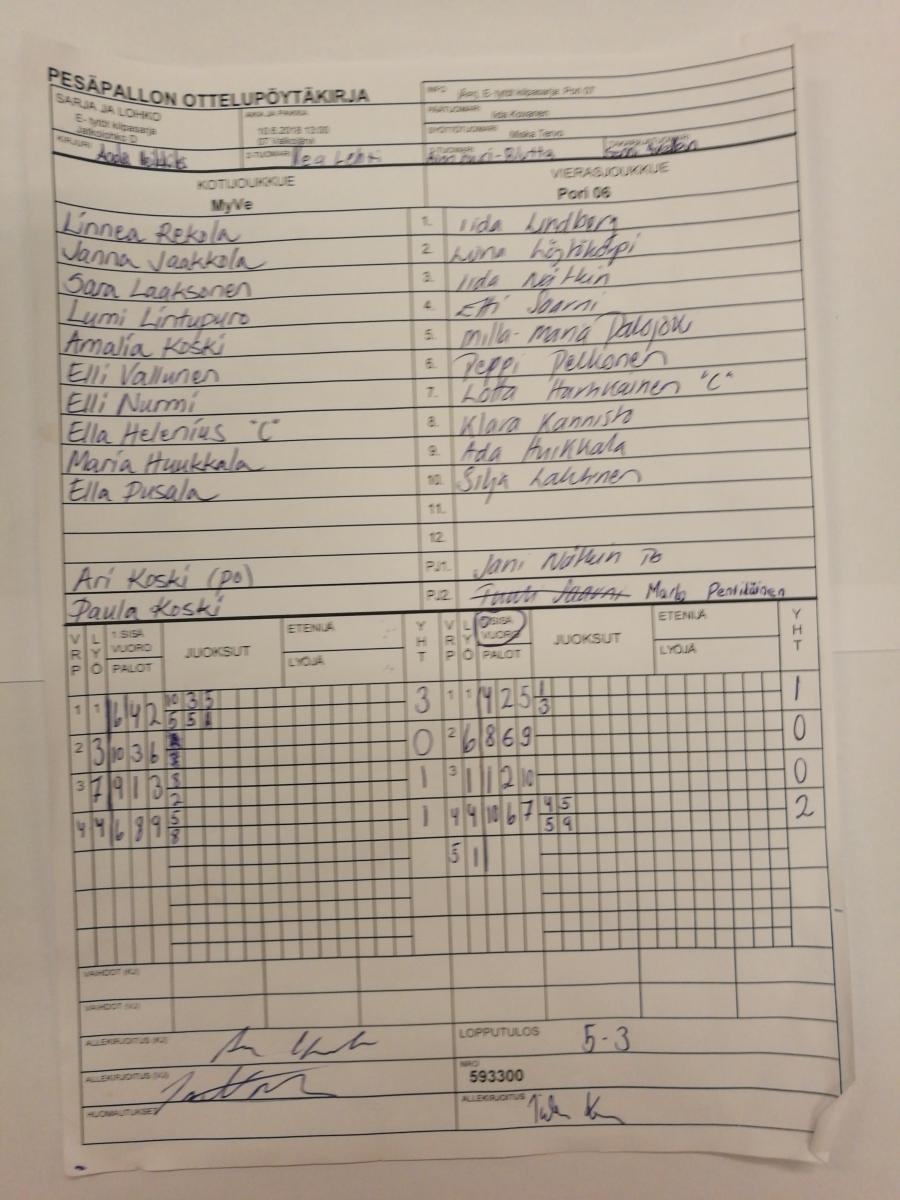 PESÄPALLON OTTELUPÖYTÄKIRJA
SARJA JA LOHKO
E- tytöt kilpasarja
Jatkolohko D
AIKA JA PAIKKA
10.6.2018 13:00
07 Valkojärvi
INFO
E- tytöt kilpasarja Pori 07
PÄÄTUOMARI
Iida Kovanen
SYÖTTÖTUOMARI
Miska Tervo
KIRJURI
2-TUOMARI
3-TUOMARI
TAKARAJATUOMARI
KOTIJOUKKUE
VIERASJOUKKUE
MyVe
Pori 06
Linnea Rekola 1. Iida Lindberg
Janna Jaakkola 2.
Sara Laaksonen 3. Iida Nätkin
Lumi Lintupuro 4. Etti Saarni
Amalia Koski 5. Milla-Maria
Elli Vallunen 6. Peppi Pelkonen
Elli Nurmi 7. Lotta "C"
Ella Helenius "C" 8. Klara Kannisto
Maria Huukkala 9. Ada Huikkala
Ella Pusala 10. Silja Lahtinen
11.
12.
Ari Koski (PO) PJ1. Jani Nätkin
Paula Koski PJ2. Tuuli Saarni
VRP LYÖ 1.SISÄ VUORO PALOT JUOKSUT ETENIJÄ LYÖJÄ YHT VRP LYÖ SISÄ VUORO PALOT JUOKSUT ETENIJÄ LYÖJÄ YHT
1 1 6 4 2 10 3 5 3 1 1 4 2 5 1 1
5 5 1 3
2 3 10 3 6 0 2 6 8 6 9 0
3 7 9 1 3 8 1 3 1 1 2 10 0
2
4 4 6 8 9 5 1 4 4 10 6 7 4 5 2
8 5 9
5 1
VAIHDOT (KJ)
VAIHDOT (VJ)
ALLEKIRJOITUS (KJ)
LOPPUTULOS 5-3
ALLEKIRJOITUS (VJ)
NRO
593300
HUOMAUTUKSET
ALLEKIRJOITUS